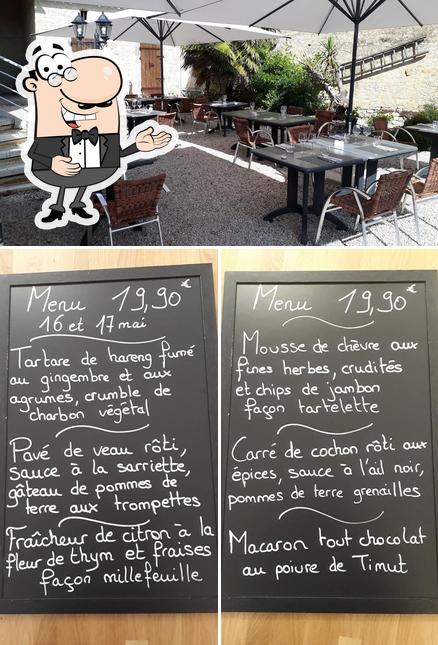 Menu 19,90€
16 et 17 mai
Tartare de hareng fumé
au gingembre et aux
agrumes, crumble de
charbon végétal
Pavé de veau rôti,
sauce à la sarriette,
gâteau de pommes de
terre aux trompettes
Fraîcheur de citron à la
fleur de thym et fraises
façon millefeuille
Menu 19,90€
Mousse de chèvre aux
fines herbes, crudités
et chips de jambon
façon tartelette
Carré de cochon rôti aux
épices, sauce à l'ail noir,
pommes de terre grenailles
Macaron tout chocolat
au poivre de Timut